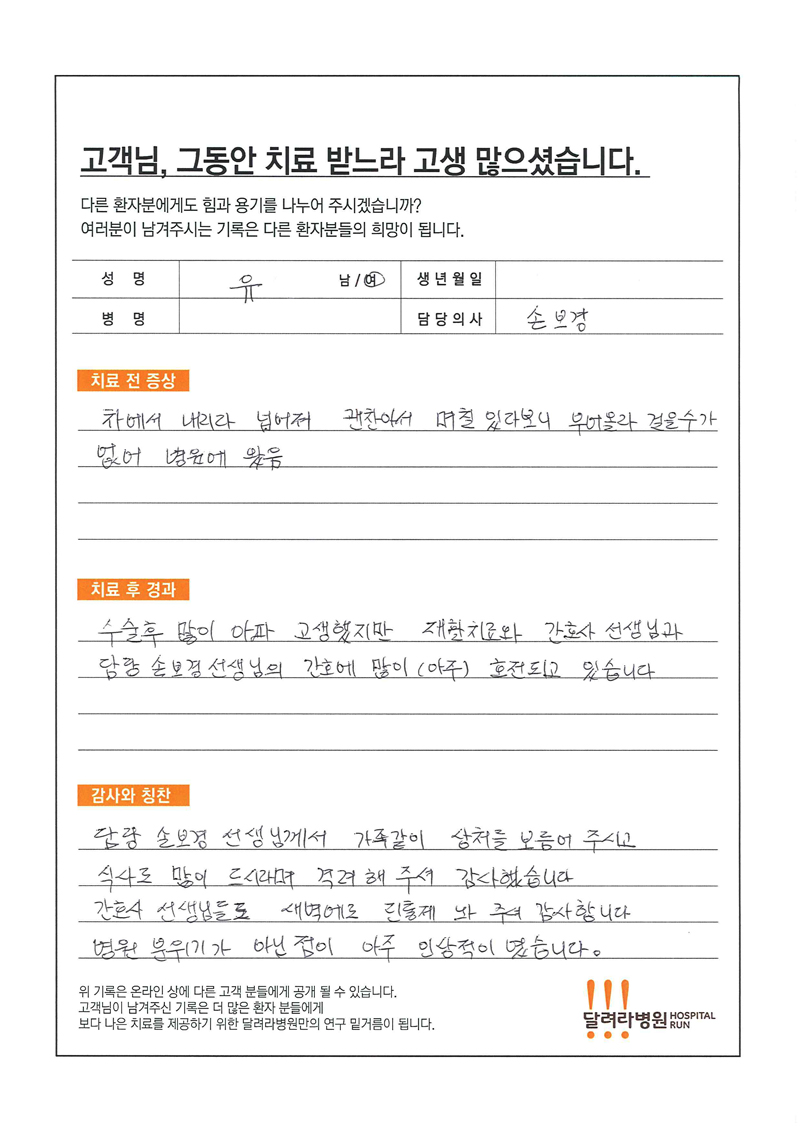 고객님, 그동안 치료 받느라 고생 많으셨습니다.
다른 환자분에게도 힘과 용기를 나누어 주시겠습니까?
여러분이 남겨주시는 기록은 다른 환자분들의 희망이 됩니다.
성 명 유 남/여 생년월일
병 명 담당의사 손보경
치료 전 증상
차에서 내리라 넘어져 괜찬아서 며칠 있다보니 부어올라 걸을수가
없어 병원에 왔음
치료 후 경과
수술후 많이 아파 고생했지만 재활치료와 간호사 선생님과
담당 손보경 선생님의 간호에 많이 (아주) 호전되고 있습니다
감사와 칭찬
담당 손보경 선생님께서 가족같이 상처를 보름어 주시고
식사도 많이 드시라며 격려해 주셔 감사했습니다
간호사 선생님들도 새벽에도 진통제 놔 주셔 감사합니다
병원 분위기가 아닌점이 아주 인상적이였습니다.
위 기록은 온라인 상에 다른 고객 분들에게 공개 될 수 있습니다.
고객님이 남겨주신 기록은 더 많은 환자 분들에게
보다 나은 치료를 제공하기 위한 달려라병원만의 연구 밑거름이 됩니다.
달려라병원 HOSPITAL RUN